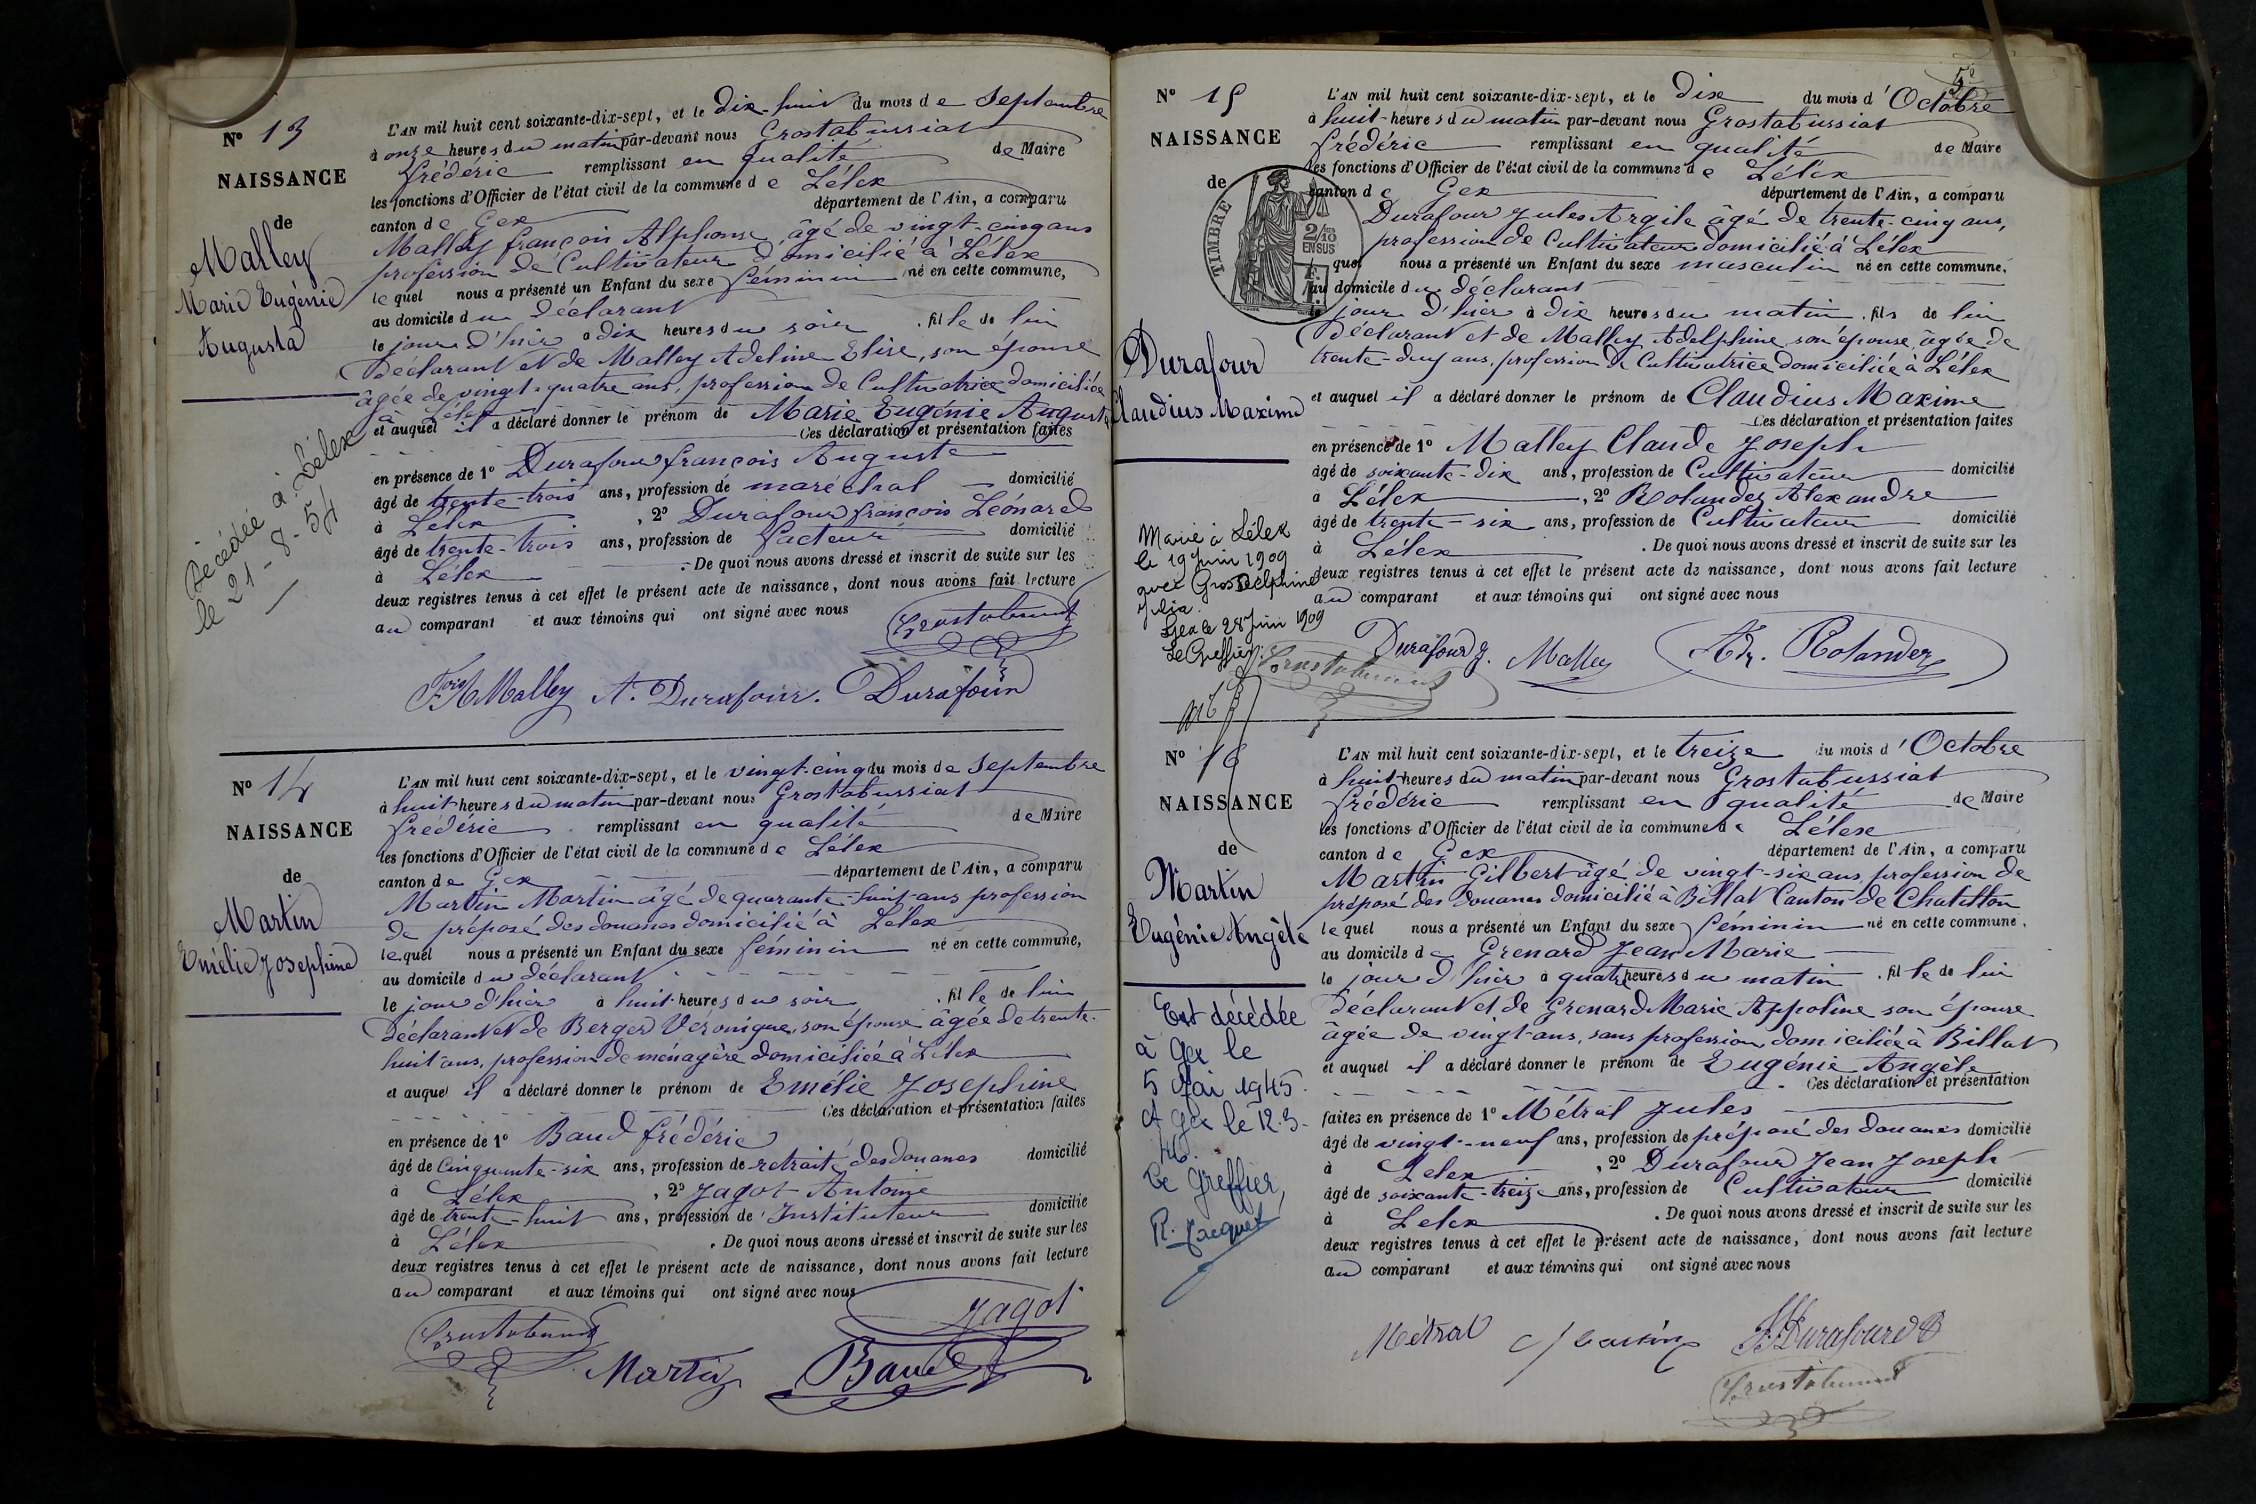 N° 13
NAISSANCE
de
Malley
Marie Eugénie
Augusta
Décédée à Lélex
le 21-8-54
L'AN mil huit cent soixante-dix-sept, et le dix-huit du mois de Septembre
à onze heures du matin par-devant nous Grostabussiat
frédéric remplissant en qualité de Maire
les fonctions d'Officier de l'état civil de la commune de Lélex
canton de Gex département de l'Ain, a comparu
Malley françois Alphonse âgé de vingt-cinq ans
profession de Cultivateur domicilié à Lélex
lequel nous a présenté un Enfant du sexe féminin né en cette commune,
au domicile du déclarant
le jour d'hier à dix heures du soir, fille de lui
déclarant et de Malley Adeline Elise, son épouse
âgée de vingt-quatre ans, profession de Cultivatrice domiciliée
à Lélex
et auquel il a déclaré donner le prénom de Marie Eugénie Augusta
Ces déclaration et présentation faites
en présence de 1° Durafour françois Auguste
âgé de trente-trois ans, profession de maréchal domicilié
à Lélex, 2° Durafour françois Léonard
âgé de trente-trois ans, profession de facteur domicilié
à Lélex. De quoi nous avons dressé et inscrit de suite sur les
deux registres tenus à cet effet le présent acte de naissance, dont nous avons fait lecture
au comparant et aux témoins qui ont signé avec nous
Grostabussiat
Fois A Malley A. Durafour. Durafour
N° 14
NAISSANCE
de
Martin
Emélie Josephine
L'AN mil huit cent soixante-dix-sept, et le vingt-cinq du mois de Septembre
à huit heures du matin par-devant nous Grostabussiat
frédéric remplissant en qualité de Maire
les fonctions d'Officier de l'état civil de la commune de Lélex
canton de Gex département de l'Ain, a comparu
Martin Martin âgé de quarante-huit ans profession
de préposé des douanes domicilié à Lélex
lequel nous a présenté un Enfant du sexe féminin né en cette commune,
au domicile du déclarant
le jour d'hier à huit heures du soir, fille de lui
déclarant et de Berger Véronique, son épouse âgée de trente-
huit ans, profession de ménagère domiciliée à Lélex
et auquel il a déclaré donner le prénom de Emélie Josephine
Ces déclaration et présentation faites
en présence de 1° Baud frédéric
âgé de Cinquante-six ans, profession de retraité des douanes domicilié
à Lélex, 2° Jagot Antoine
âgé de trente-huit ans, profession de Instituteur domicilié
à Lélex. De quoi nous avons dressé et inscrit de suite sur les
deux registres tenus à cet effet le présent acte de naissance, dont nous avons fait lecture
au comparant et aux témoins qui ont signé avec nous
Jagot
Grostabussiat
Martin Baud
5e
N° 15
NAISSANCE
de
TIMBRE
2/10
EN SUS
Durafour
Claudius Maxime
Marié à Lélex
le 19 Juin 1909
avec Gros Delphine
Julia.
Gex le 28 Juin 1909
Le Greffier
L'AN mil huit cent soixante-dix-sept, et le dix du mois d'Octobre
à huit heures du matin par-devant nous Grostabussiat
frédéric remplissant en qualité de Maire
les fonctions d'Officier de l'état civil de la commune de Lélex
canton de Gex département de l'Ain, a comparu
Durafour Jules Argile âgé de trente-cinq ans,
profession de Cultivateur domicilié à Lélex
quel nous a présenté un Enfant du sexe masculin né en cette commune,
au domicile du déclarant
jour d'hier à dix heures du matin, fils de lui
déclarant et de Malley Adelphine, son épouse, âgée de
trente-deux ans, profession de Cultivatrice domiciliée à Lélex
et auquel il a déclaré donner le prénom de Claudius Maxime
Ces déclaration et présentation faites
en présence de 1° Malley Claude Joseph
âgé de soixante-dix ans, profession de Cultivateur domicilié
à Lélex, 2° Rolandez Alexandre
âgé de trente-six ans, profession de Cultivateur domicilié
à Lélex. De quoi nous avons dressé et inscrit de suite sur les
deux registres tenus à cet effet le présent acte de naissance, dont nous avons fait lecture
au comparant et aux témoins qui ont signé avec nous
Durafour J. Malley Adr. Rolandez
Grostabussiat
N° 16
NAISSANCE
de
Martin
Eugénie Angèle
Est décédée
à Gex le
5 Mai 1945
Gex le 12.3.
46.
Le Greffier,
R. Jacquet
L'AN mil huit cent soixante-dix-sept, et le treize du mois d'Octobre
à huit heures du matin par-devant nous Grostabussiat
frédéric remplissant en qualité de Maire
les fonctions d'Officier de l'état civil de la commune de Lélex
canton de Gex département de l'Ain, a comparu
Martin Gilbert âgé de vingt-six ans, profession de
préposé des douanes domicilié à Billat Canton de Chatillon
lequel nous a présenté un Enfant du sexe féminin né en cette commune,
au domicile de Grenard Jean Marie
le jour d'hier à quatre heures du matin, fille de lui
déclarant et de Grenard Marie Appoline son épouse
âgée de vingt ans, sans profession, domiciliée à Billat
et auquel il a déclaré donner le prénom de Eugénie Angèle
Ces déclaration et présentation
faites en présence de 1° Métral Jules
âgé de vingt-neuf ans, profession de préposé des douanes domicilié
à Lélex, 2° Durafour Jean Joseph
âgé de soixante-treize ans, profession de Cultivateur domicilié
à Lélex. De quoi nous avons dressé et inscrit de suite sur les
deux registres tenus à cet effet le présent acte de naissance, dont nous avons fait lecture
au comparant et aux témoins qui ont signé avec nous
Métral Martin JJ Durafour
Grostabussiat